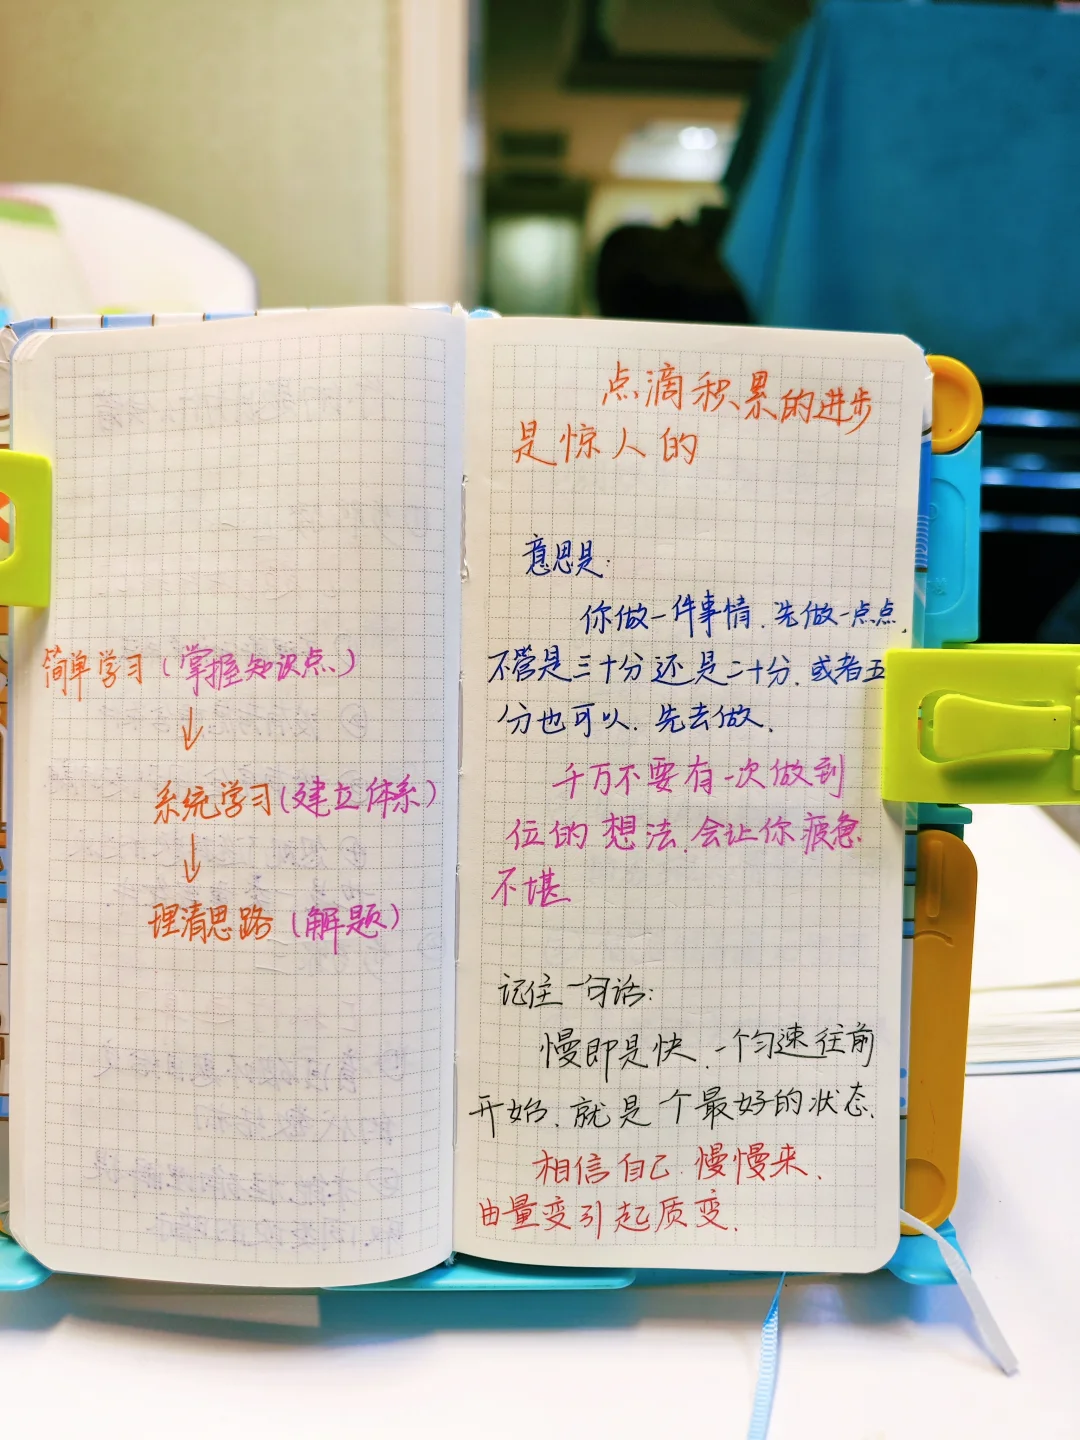 简单学习(掌握知识点)
↓
系统学习(建立体系)
↓
理清思路(解题)
点滴积累的进步
是惊人的
意思是:
你做一件事情.先做一点点.
不管是三十分还是二十分.或者五
分也可以.先去做.
千万不要有一次做到
位的想法.会让你疲惫
不堪
记住一句话:
慢即是快.一个匀速往前
开始.就是个最好的状态.
相信自己.慢慢来.
由量变引起质变.